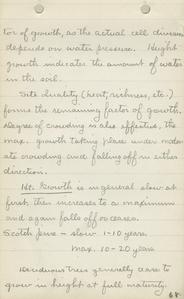 tor of growth, as the actual cell division
depends on water pressure. Height
growth indicates the amount of water
in the soil.
Site quality (heat, richness, etc.)
forms the remaining factor of growth.
Degree of crowding is also effective, the
max. growth taking place under moder-
ate crowding and falling off in either
direction.
Ht. Growth is in general slow at
first, then increases to a maximum
and again falls off or ceases.
Scotch pine - slow 1-10 years.
max. 10-20 years
Deciduous trees generally cease to
grow in height at full maturity.
68